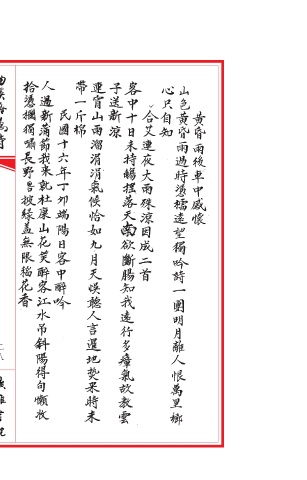 黃昏雨後車中感懷
山色黃昏雨過時憑欞遙望獨吟詩一團明月離人恨萬里鄉
心只自知
合艾連夜大雨殊涼因成二首
客中十日未持觴擺落天南欲斷腸知我遠行多瘴氣故教雲
子送新涼
連宵山雨溜涓涓氣候恰如九月天誤聽人言暹地熱來時未
帶一斤棉
民國十六年丁卯端陽日客中醉吟
人過新蒲節我來就杜康山花笑醉客江水吊斜陽得句懶收
拾憑欄獨嘯長野
披綠蓋無限稻花香